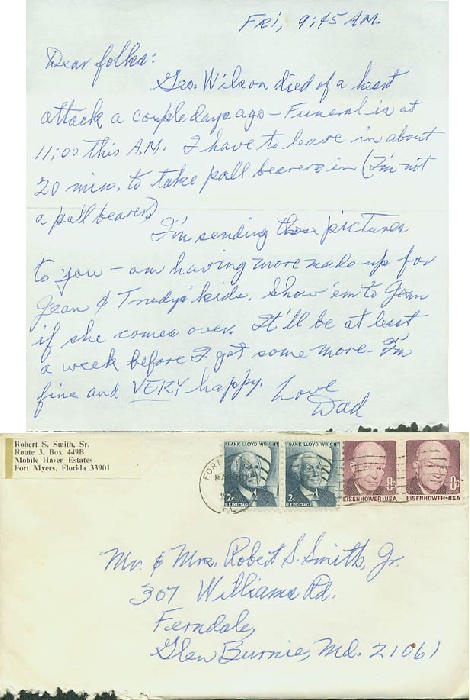 Fri, 9:45 A.M.
Dear folks:
Geo. Wilson died of a heart
attack a couple days ago - Funeral is at
11:00 this A.M. I have to leave in about
20 min. to take pall bearers in (I'm not
a pall bearer)
I'm sending these pictures
to you - am having more made up for
Jean & Trudy's kids. Show 'em to Jean
if she comes over. It'll be at least
a week before I get some more. I'm
fine and VERY happy. Love
Dad
Robert S. Smith, Sr.
Route 3, Box 449B
Mobile Haver Estates
Fort Myers, Florida 33901
FRANK LLOYD WRIGHT
2c
U.S. POSTAGE
FRANK LLOYD WRIGHT
2c
U.S. POSTAGE
8c
EISENHOWER·USA
8c
EISENHOWER·USA
FORT
Mr. & Mrs. Robert S. Smith, Jr.
307 Williams Rd.
Ferndale,
Glen Burnie, Md. 21061